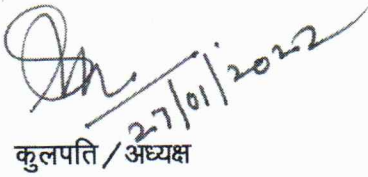 27/01/2022
कुलपति / अध्यक्ष